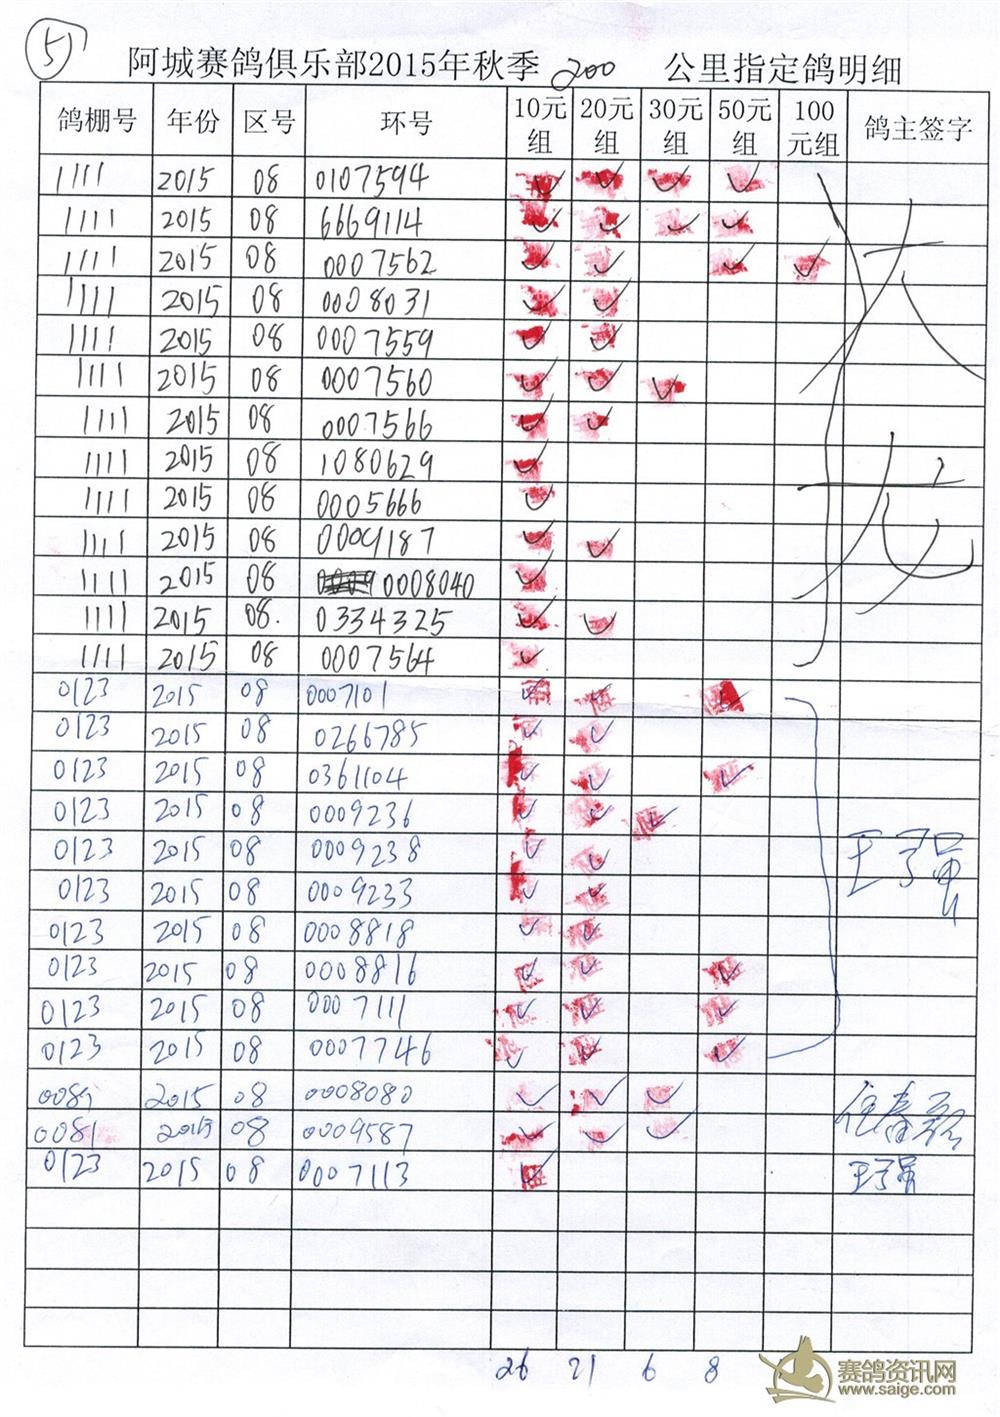 5
阿城赛鸽俱乐部2015年秋季 200 公里指定鸽明细
鸽棚号 年份 区号 环号 10元组 20元组 30元组 50元组 100元组 鸽主签字
1111 2015 08 0107594 ✓ ✓ ✓ ✓
1111 2015 08 6669114 ✓ ✓ ✓ ✓
1111 2015 08 0007562 ✓ ✓ ✓ ✓
1111 2015 08 0008031 ✓ ✓
1111 2015 08 0007559 ✓ ✓
1111 2015 08 0007560 ✓ ✓ ✓
1111 2015 08 0007566 ✓ ✓
1111 2015 08 1080629 ✓
1111 2015 08 0005666 ✓
1111 2015 08 0009187 ✓ ✓
1111 2015 08 0008040 ✓
1111 2015 08. 0334325 ✓ ✓
1111 2015 08 0007564 ✓
0123 2015 08 0007101 ✓ ✓ ✓
0123 2015 08 0266785 ✓ ✓
0123 2015 08 0361104 ✓ ✓ ✓
0123 2015 08 0009236 ✓ ✓ ✓
0123 2015 08 0009238 ✓ ✓
0123 2015 08 0009233 ✓ ✓
0123 2015 08 0008818 ✓ ✓
0123 2015 08 0008816 ✓ ✓ ✓
0123 2015 08 0007111 ✓ ✓ ✓
0123 2015 08 0007746 ✓ ✓ ✓
2015 08 0008080 ✓ ✓ ✓
0081 2015 08 0009587 ✓ ✓ ✓
0123 2015 08 0007113 ✓
26 21 6 8
赛鸽资讯网
www.saige.com